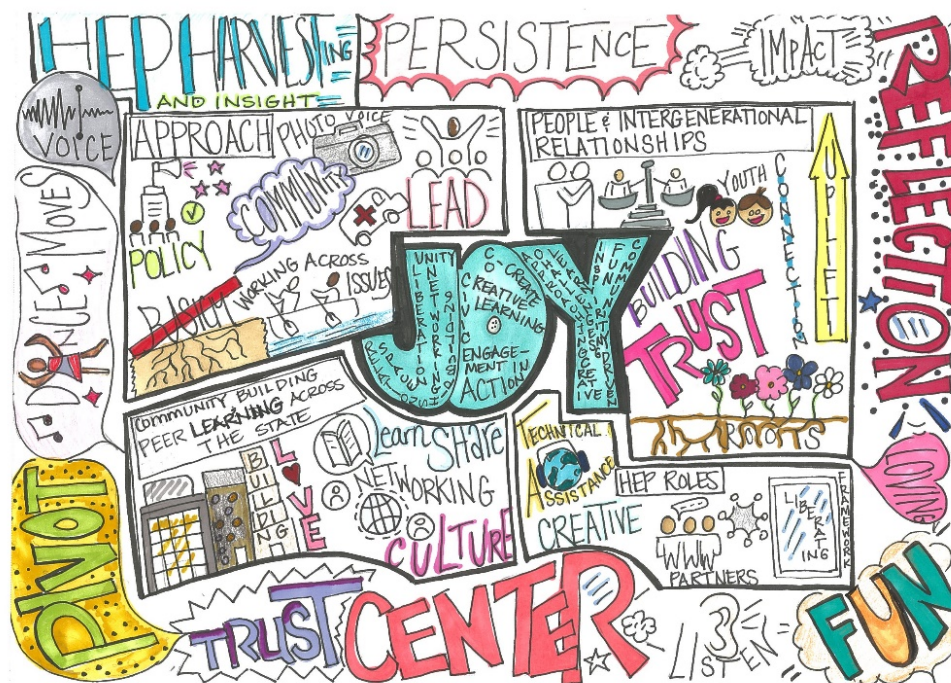 HEP HARVESTing
AND INSIGHT
PERSISTENCE
IMPACT
REFLECTION
VOICE
DANCES MOVES
APPROACH
PHOTO VOICE
COMMUNITY
LEAD
POLICY
RACISM
WORKING ACROSS
ISSUES
PEOPLE & INTERGENERATIONAL
RELATIONSHIPS
YOUTH
CONNECTION
UPLIFT
BUILDING
TRUST
ROOTS
JOY
UNITY
LIBERATION
NETWORKING
CO-CREATE
CREATIVE
LEARNING
CIVIC
ENGAGE-
MENT IN
ACTION
COMMUNITY BUILDING
PEER LEARNING ACROSS
THE STATE
BUILDING
LOVE
Learn
SHARE
NETWORKING
CULTURE
TECHNICAL
ASSISTANCE
CREATIVE
HEP ROLES
WWW
PARTNERS
LIBERATING
FRAMEWORK
LOVING
PIVOT
TRUST
CENTER
LISTEN
FUN